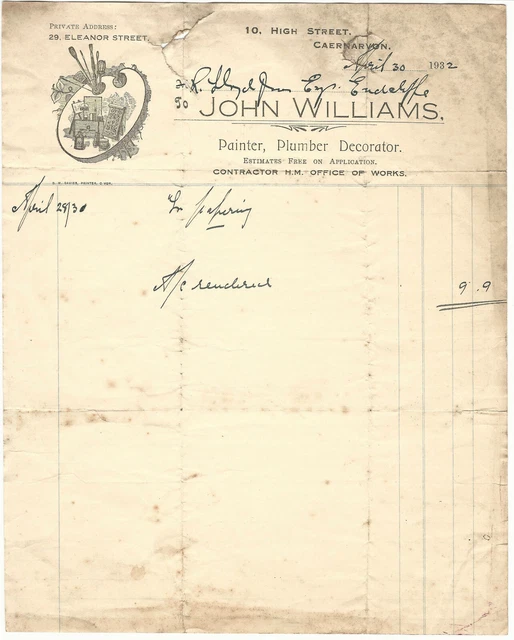 PRIVATE ADDRESS:
29. ELEANOR STREET.
10, HIGH STREET,
CAERNARVON.
April 30 1932
R. Lloyd Jones Esq.
To
JOHN WILLIAMS.
Painter, Plumber Decorator.
ESTIMATES FREE ON APPLICATION.
CONTRACTOR H.M. OFFICE OF WORKS.
April 28/30 To papering
A/c rendered 9 . 9